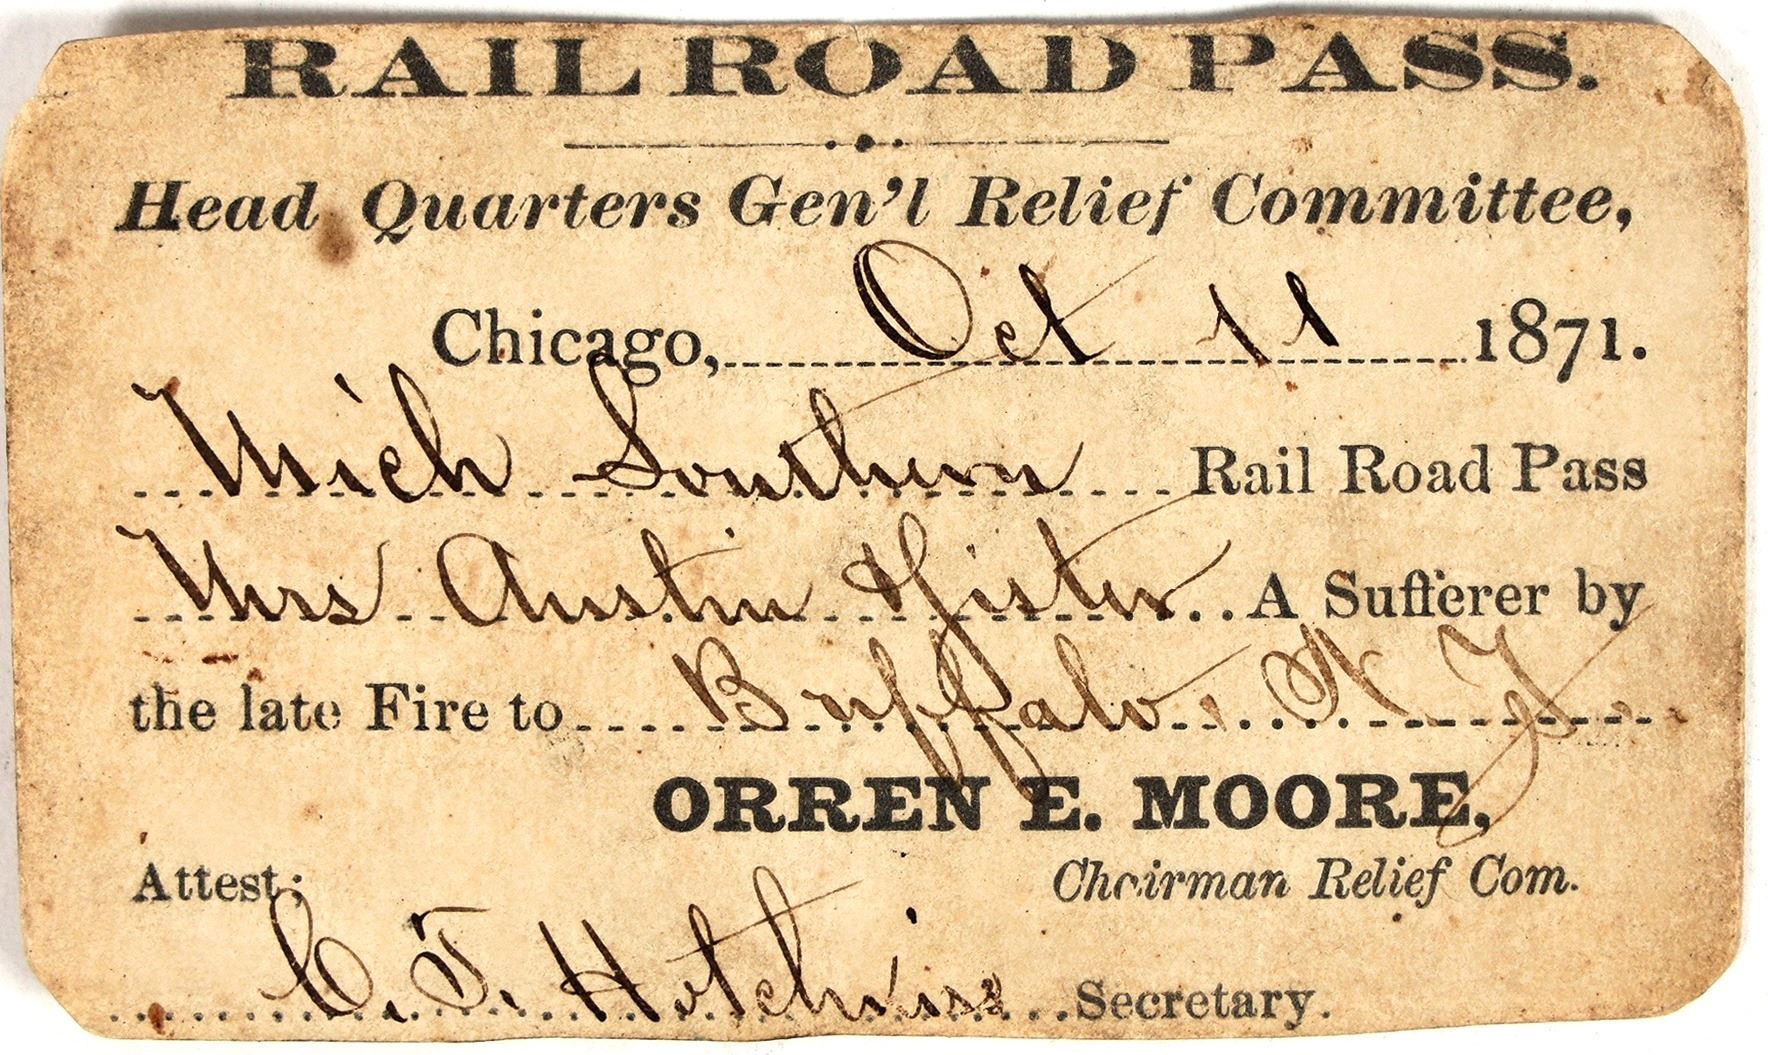 RAIL ROAD PASS.
Head Quarters Gen'l Relief Committee,
Chicago, Oct 11 1871.
Mich Southern Rail Road Pass
Mrs Austin & Sister A Sufferer by
the late Fire to Buffalo, N Y.
ORREN E. MOORE,
Attest; Chairman Relief Com.
C. T. Hotchkiss Secretary.